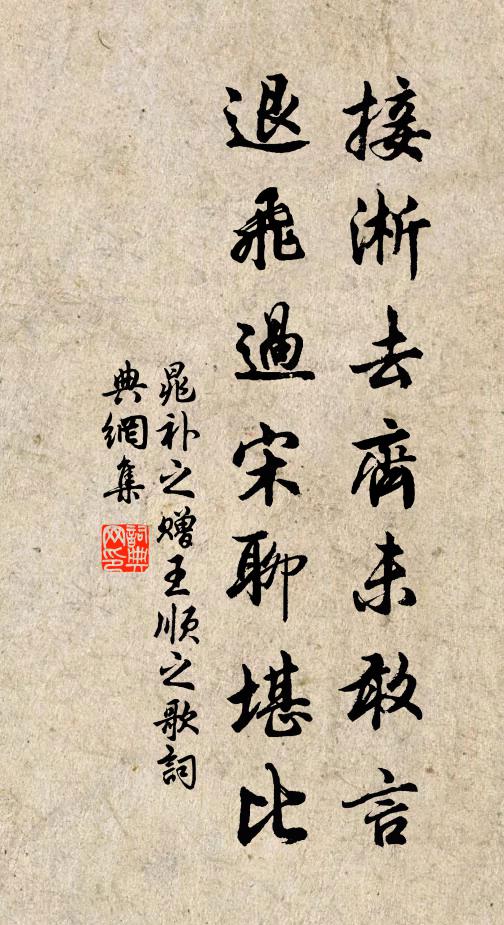 接淅去齊未敢言
退飛過宋聊堪比
晁补之赠王顺之歌詞
典網集
詞典
网印